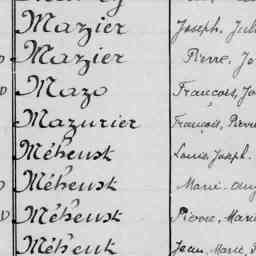 Mazier Joseph, Juli
Mazier Pierre, Jo
D Mazo Francois, Jo
Mazurier François, Pierre
Méheust Louis, Joseph
Méheust Marie
D Méheust Pierre, Marie
Méheut Jean, Marie,